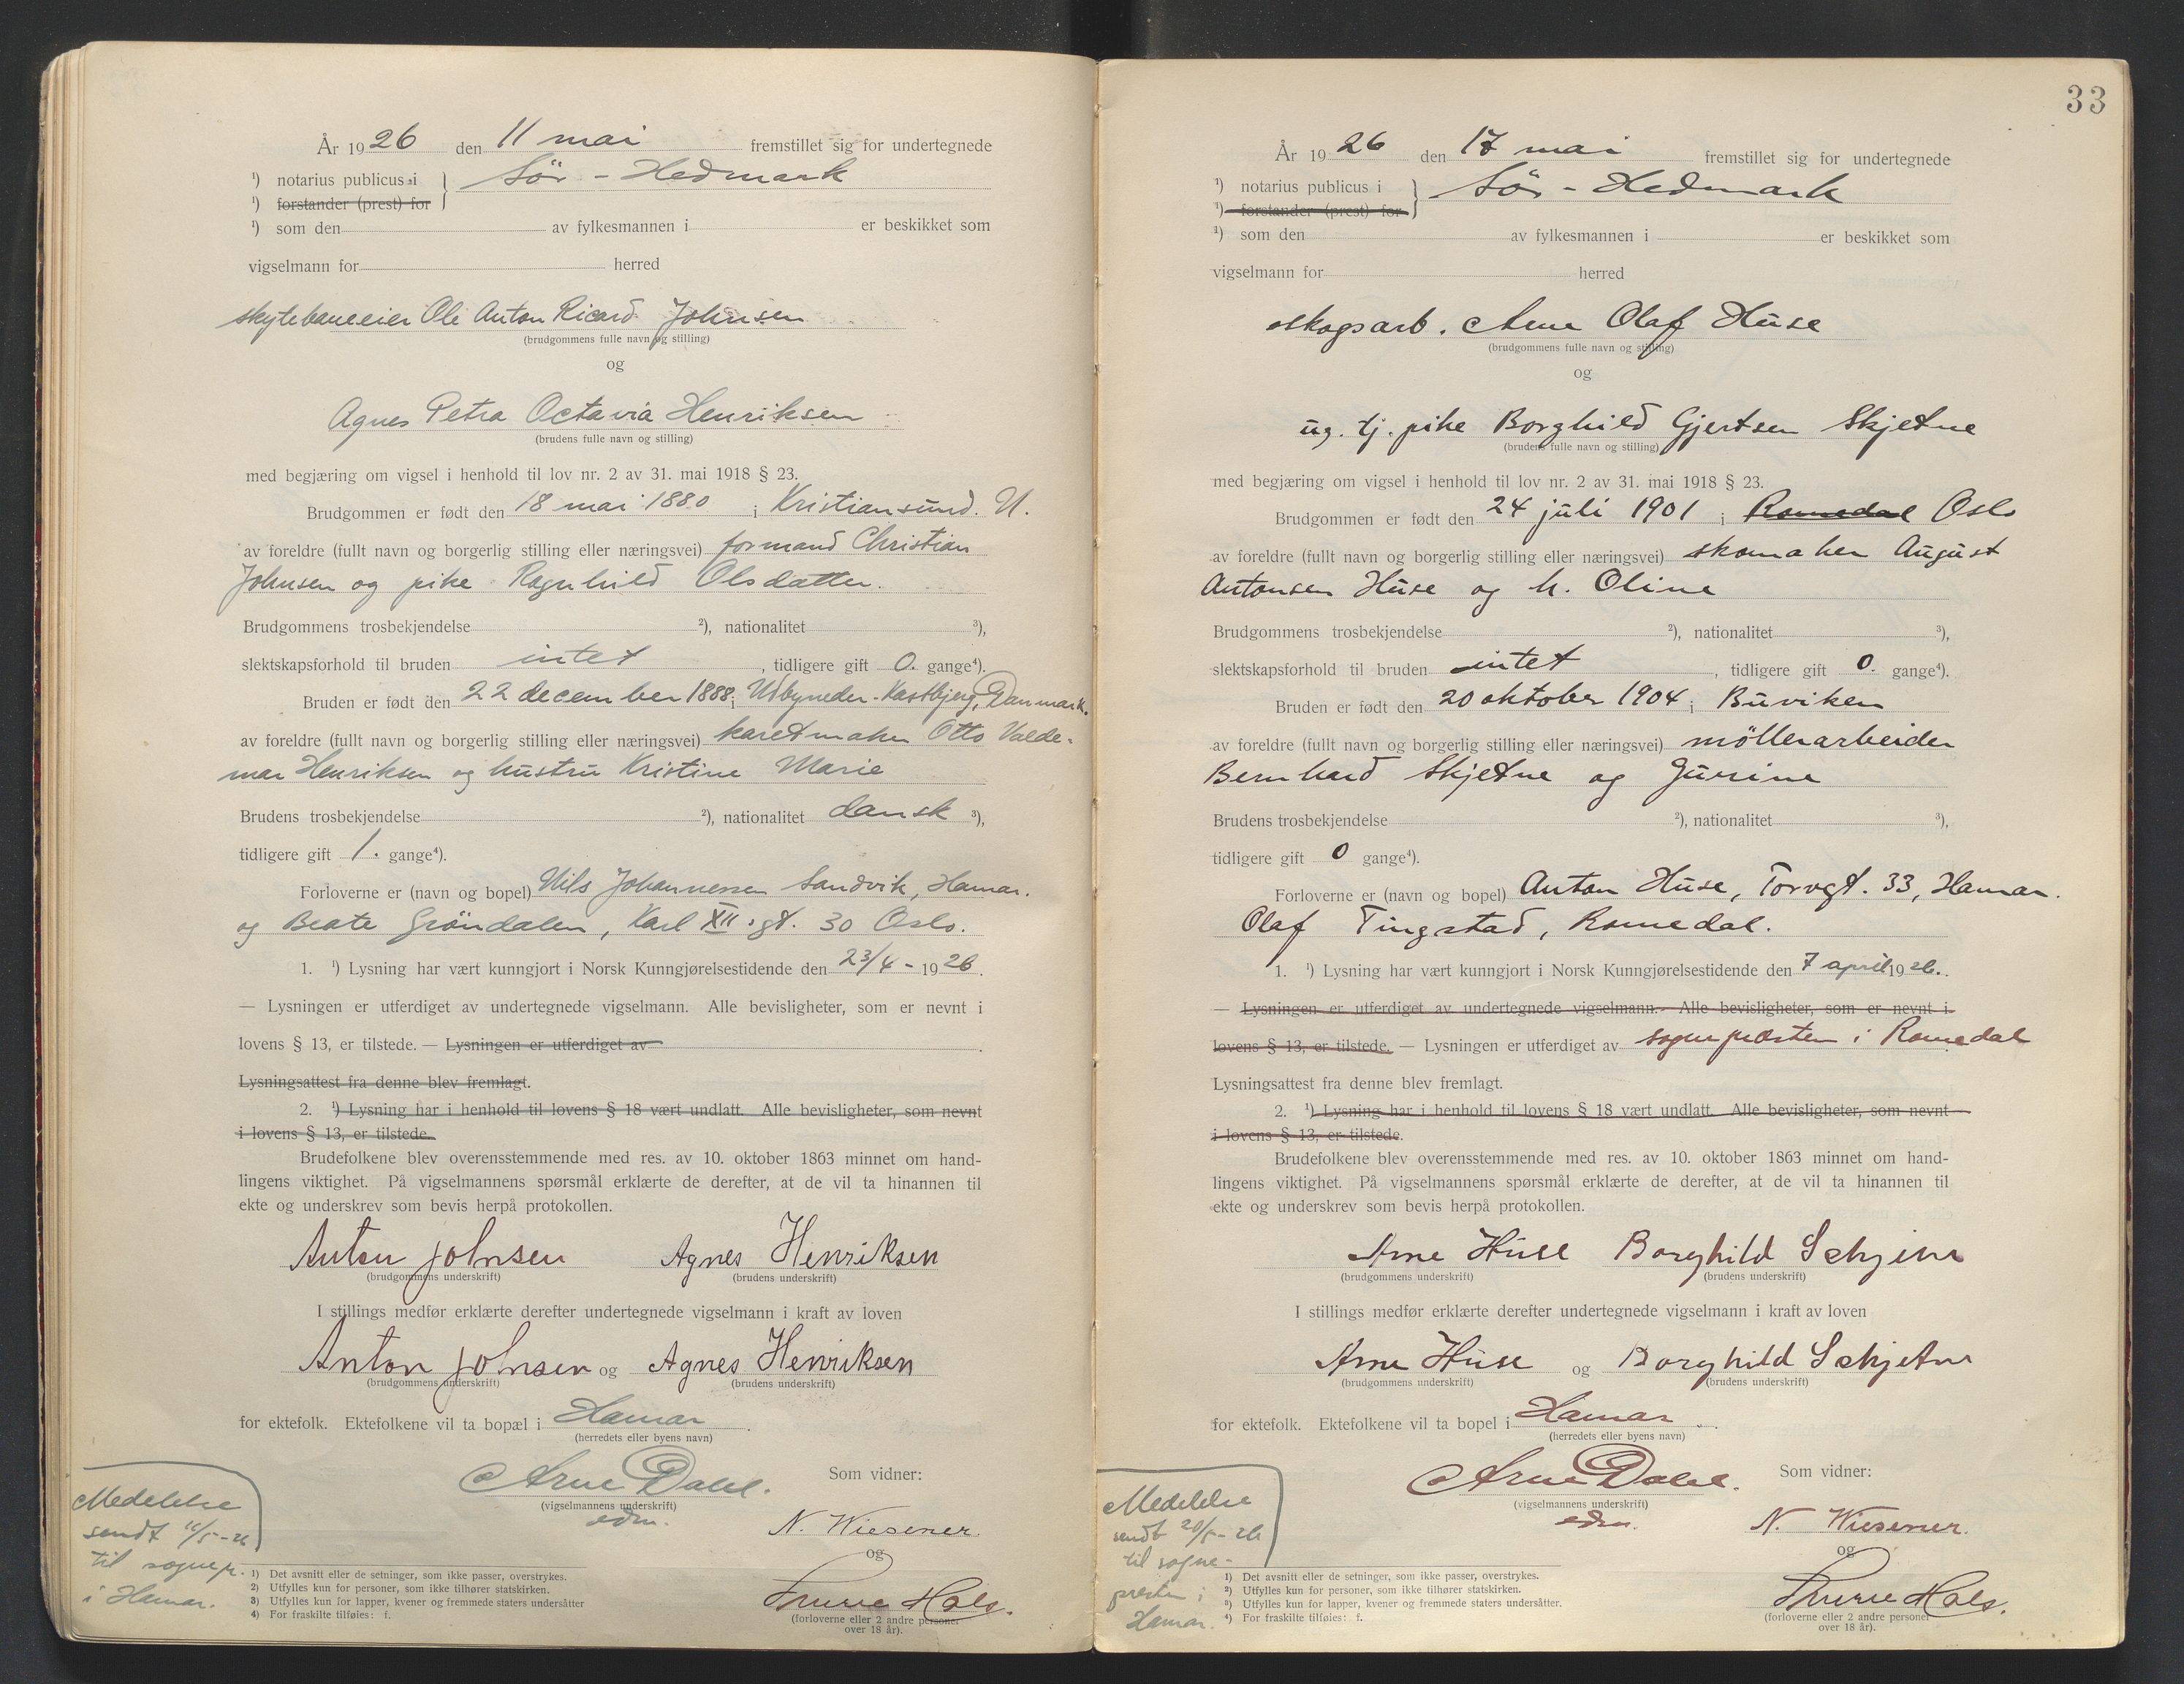 År 1926 den 11 mai fremstillet sig for undertegnede
¹) notarius publicus i } Sör - Hedmark
¹) forstander (prest) for
¹) som den av fylkesmannen i er beskikket som
vigselmann for herred
skytebaneeier Ole Anton Ricard Johnsen
(brudgommens fulle navn og stilling)
og
Agnes Petra Octavia Henriksen
(brudens fulle navn og stilling)
med begjæring om vigsel i henhold til lov nr. 2 av 31. mai 1918 § 23.
Brudgommen er født den 18 mai 1880 i Kristiansund. N.
av foreldre (fullt navn og borgerlig stilling eller næringsvei) formand Christian
Johnsen og pike Ragnhild Olsdatter.
Brudgommens trosbekjendelse ²), nationalitet ³),
slektskapsforhold til bruden intet, tidligere gift 0. gange⁴).
Bruden er født den 22 december 1888 i Udbyneder-Kastbjerg, Danmark.
av foreldre (fullt navn og borgerlig stilling eller næringsvei) karetmaker Otto Valde-
mar Henriksen og hustru Kristine Marie
Brudens trosbekjendelse ²), nationalitet dansk ³),
tidligere gift 1. gange⁴).
Forloverne er (navn og bopel) Nils Johannessen Sandvik, Hamar.
og Beate Gröndalen, Karl XII.gt. 30 Oslo.
1. ¹) Lysning har vært kunngjort i Norsk Kunngjørelsestidende den 23/4 - 1926.
— Lysningen er utferdiget av undertegnede vigselmann. Alle bevisligheter, som er nevnt i
lovens § 13, er tilstede. — Lysningen er utferdiget av
Lysningsattest fra denne blev fremlagt.
2. ¹) Lysning har i henhold til lovens § 18 vært undlatt. Alle bevisligheter, som nevnt
i lovens § 13, er tilstede.
Brudefolkene blev overensstemmende med res. av 10. oktober 1863 minnet om hand-
lingens viktighet. På vigselmannens spørsmål erklærte de derefter, at de vil ta hinannen til
ekte og underskrev som bevis herpå protokollen.
Anton Johnsen Agnes Henriksen
(brudgommens underskrift) (brudens underskrift)
I stillings medfør erklærte derefter undertegnede vigselmann i kraft av loven
Anton Johnsen og Agnes Henriksen
(brudgommens underskrift) (brudens underskrift)
for ektefolk. Ektefolkene vil ta bopæl i Hamar.
(herredets eller byens navn)
Arne Dahl. Som vidner:
(vigselmannens underskrift)
edm.
N. Wiesener.
og
Hals.
(forloverne eller 2 andre personer
over 18 år).
Medelelse
sendt /5-26
til sognepr.
i Hamar.
1) Det avsnitt eller de setninger, som ikke passer, overstrykes.
2) Utfylles kun for personer, som ikke tilhører statskirken.
3) Utfylles kun for lapper, kvener og fremmede staters undersåtter
4) For fraskilte tilføies: f.
33
År 1926 den 17 mai fremstillet sig for undertegnede
¹) notarius publicus i } Sör - Hedmark
¹) forstander (prest) for
¹) som den av fylkesmannen i er beskikket som
vigselmann for herred
skogsarb. Arne Olaf Huse
(brudgommens fulle navn og stilling)
og
ug. tj. pike Borghild Gjertsen Skjetne
(brudens fulle navn og stilling)
med begjæring om vigsel i henhold til lov nr. 2 av 31. mai 1918 § 23.
Brudgommen er født den 24 juli 1901 i Romedal Oslo
av foreldre (fullt navn og borgerlig stilling eller næringsvei) skomaker August
Antonsen Huse og h. Oline
Brudgommens trosbekjendelse ²), nationalitet ³),
slektskapsforhold til bruden intet, tidligere gift 0. gange⁴).
Bruden er født den 20 oktober 1904 i Buviken
av foreldre (fullt navn og borgerlig stilling eller næringsvei) möllerarbeider
Bernhard Skjetne og Gurine
Brudens trosbekjendelse ²), nationalitet ³),
tidligere gift 0 gange⁴).
Forloverne er (navn og bopel) Anton Huse, Torvgt. 33, Hamar.
Olaf Tingstad, Romedal.
1. ¹) Lysning har vært kunngjort i Norsk Kunngjørelsestidende den 7 april 1926.
— Lysningen er utferdiget av undertegnede vigselmann. Alle bevisligheter, som er nevnt i
lovens § 13, er tilstede. — Lysningen er utferdiget av sogneprästen i Romedal
Lysningsattest fra denne blev fremlagt.
2. ¹) Lysning har i henhold til lovens § 18 vært undlatt. Alle bevisligheter, som nevnt
i lovens § 13, er tilstede.
Brudefolkene blev overensstemmende med res. av 10. oktober 1863 minnet om hand-
lingens viktighet. På vigselmannens spørsmål erklærte de derefter, at de vil ta hinannen til
ekte og underskrev som bevis herpå protokollen.
Arne Huse Borghild
(brudgommens underskrift) (brudens underskrift)
I stillings medfør erklærte derefter undertegnede vigselmann i kraft av loven
Arne Huse og Borghild Schjetne
(brudgommens underskrift) (brudens underskrift)
for ektefolk. Ektefolkene vil ta bopel i Hamar.
(herredets eller byens navn)
Arne Dahl. Som vidner:
(vigselmannens underskrift)
edm.
N. Wiesener.
og
Hals.
(forloverne eller 2 andre personer
over 18 år).
Medelelse
sendt 20/5-26
til sogne-
presten i
Hamar.
1) Det avsnitt eller de setninger, som ikke passer, overstrykes.
2) Utfylles kun for personer, som ikke tilhører statskirken.
3) Utfylles kun for lapper, kvener og fremmede staters undersåtter.
4) For fraskilte tilføies: f.